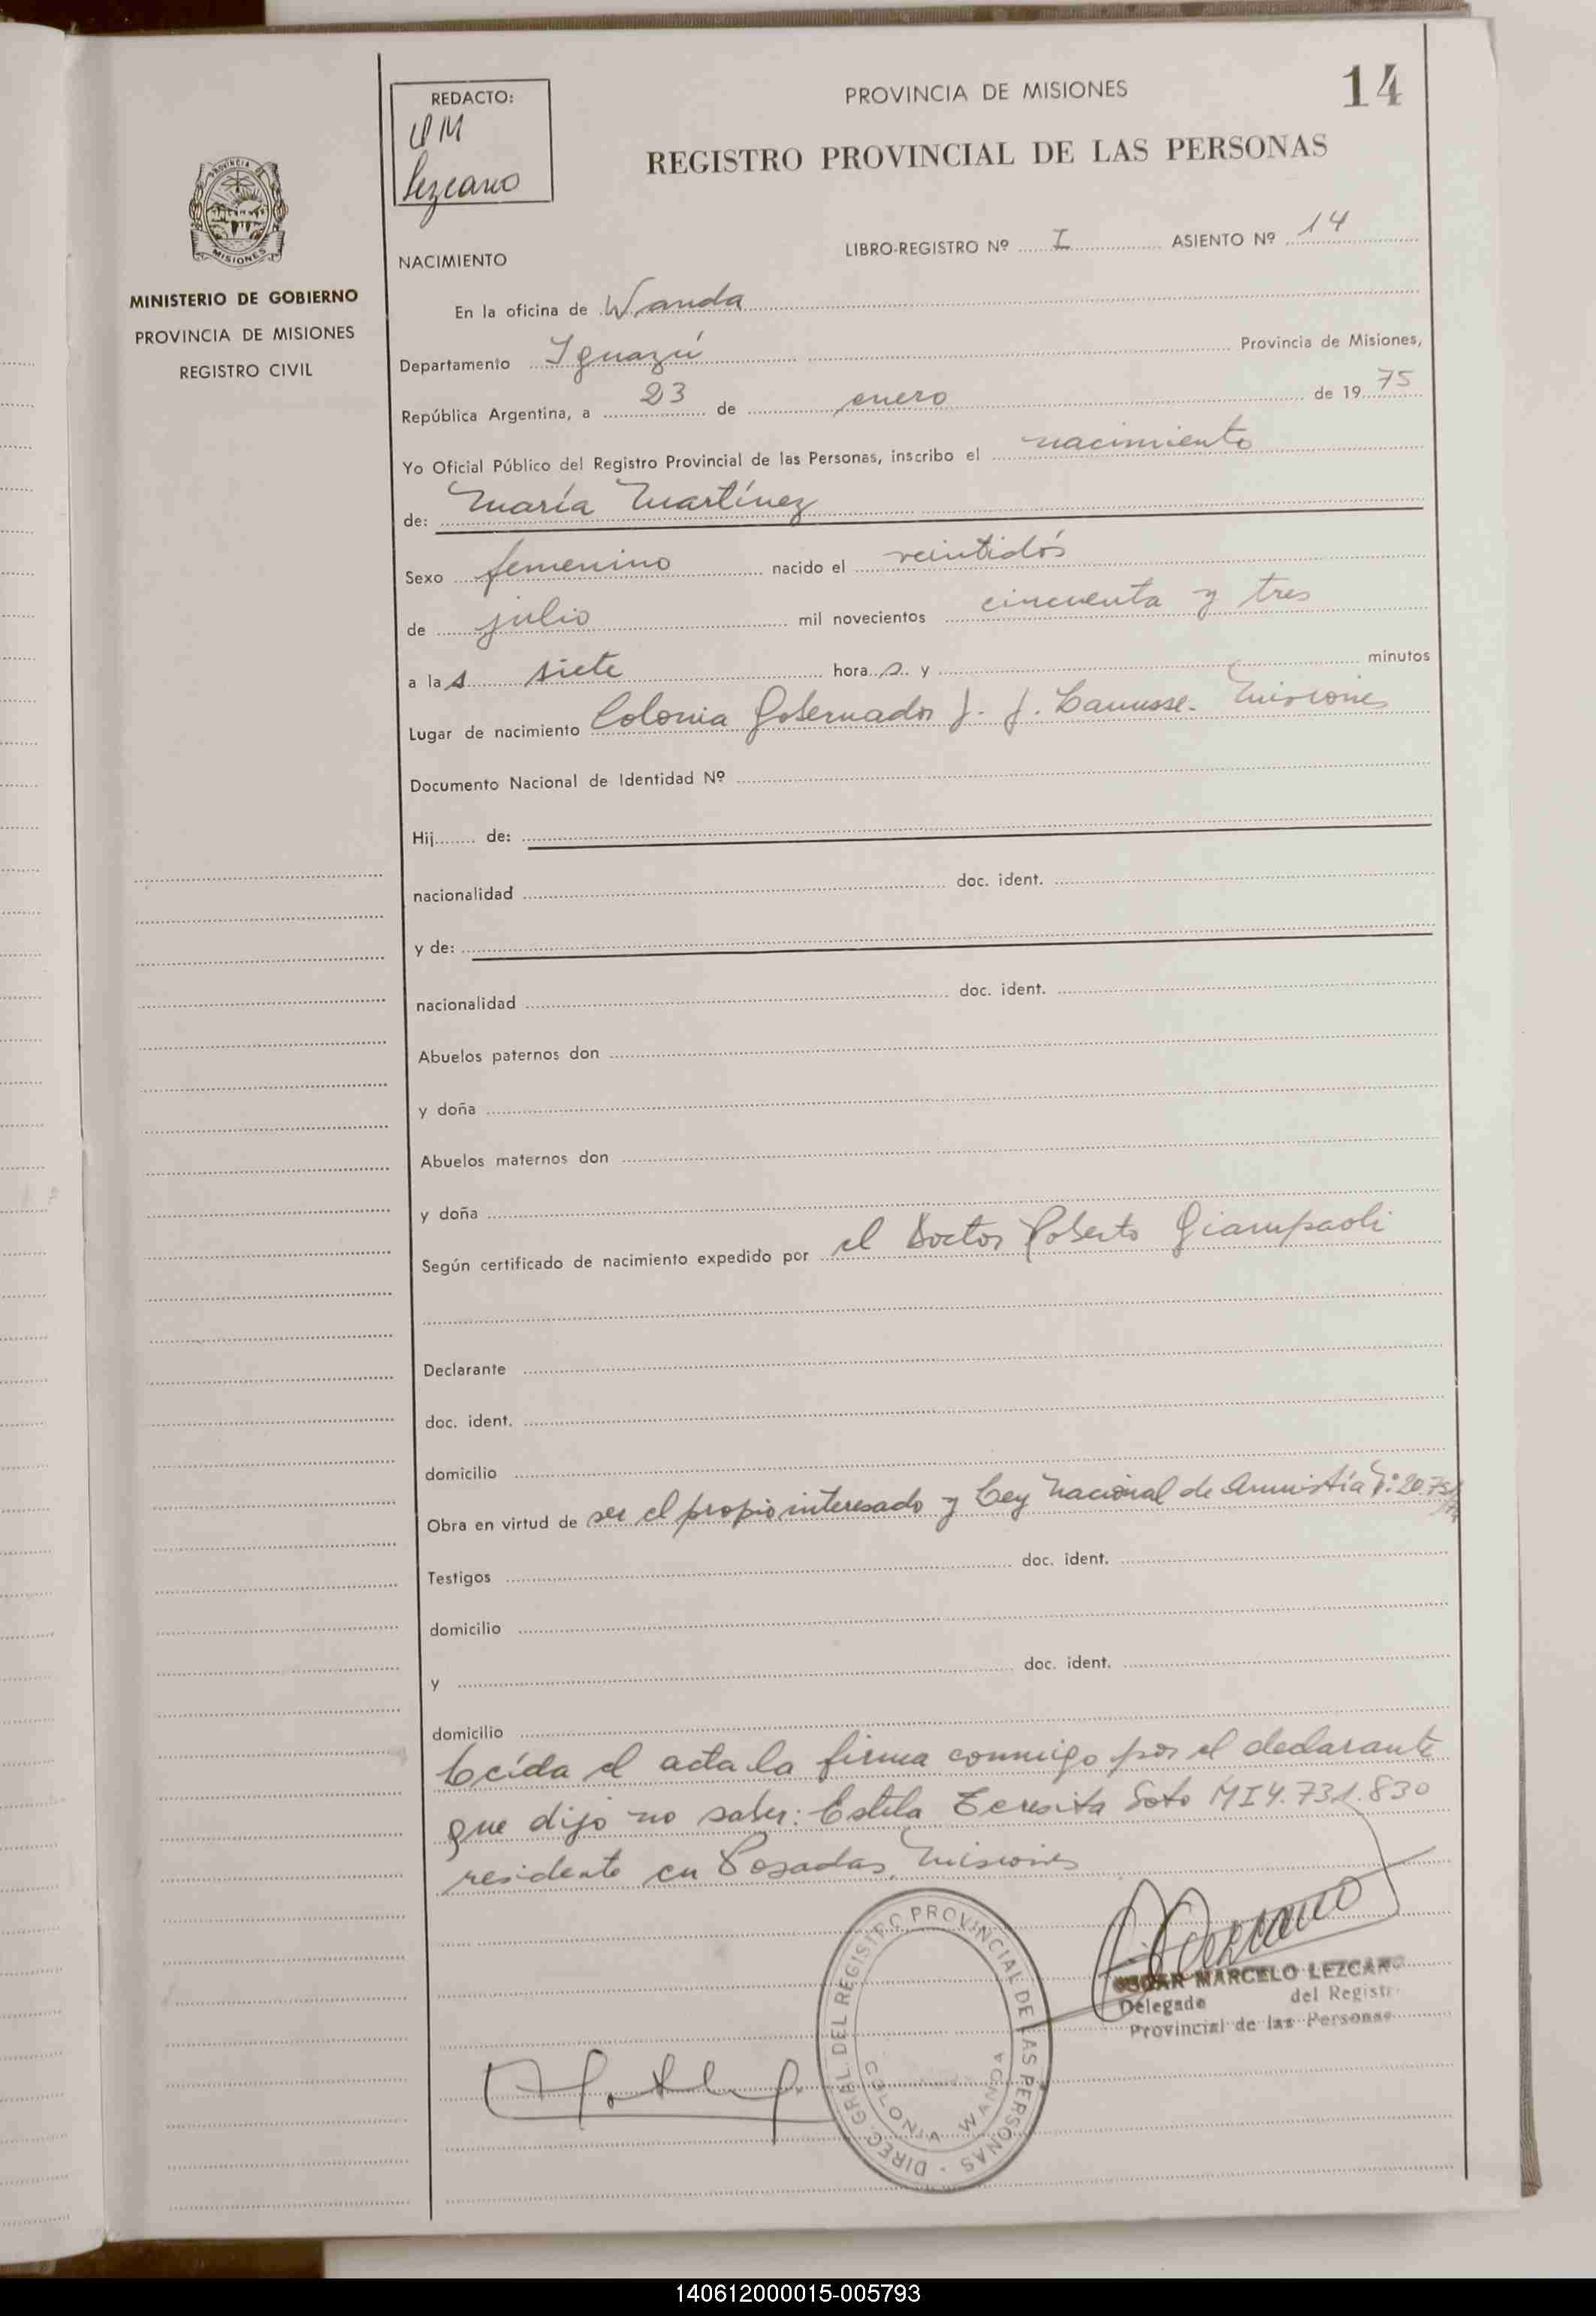 PROVINCIA DE MISIONES
14
REDACTO:
Lezcano
REGISTRO PROVINCIAL DE LAS PERSONAS
PROVINCIA
MISIONES
MINISTERIO DE GOBIERNO
PROVINCIA DE MISIONES
REGISTRO CIVIL
NACIMIENTO
LIBRO-REGISTRO Nº I ASIENTO Nº 14
En la oficina de Wanda
Departamento Iguazú Provincia de Misiones,
República Argentina, a 23 de enero de 1975
Yo Oficial Público del Registro Provincial de las Personas, inscribo el nacimiento
de: María Martínez
Sexo femenino nacido el veintidós
de julio mil novecientos cincuenta y tres
a las siete horas y minutos
Lugar de nacimiento Colonia Gobernador J. J. Lanusse. Misiones
Documento Nacional de Identidad Nº
Hij de:
nacionalidad doc. ident.
y de:
nacionalidad doc. ident.
Abuelos paternos don
y doña
Abuelos maternos don
y doña
Según certificado de nacimiento expedido por el Doctor Roberto Giampaoli
Declarante
doc. ident.
domicilio
Obra en virtud de ser el propio interesado y Ley Nacional de Amnistía
Testigos doc. ident.
domicilio
y doc. ident.
domicilio
Leída el acta la firma conmigo por el declarante
que dijo no saber: Estela Teresita Soto MI 4.731.830
residente en Posadas, Misiones
DIREC. GRAL. DEL REGISTRO PROVINCIAL DE LAS PERSONAS -
COLONIA WANDA
OSCAR MARCELO LEZCANO
Delegado del Registro
Provincial de las Personas
140612000015-005793